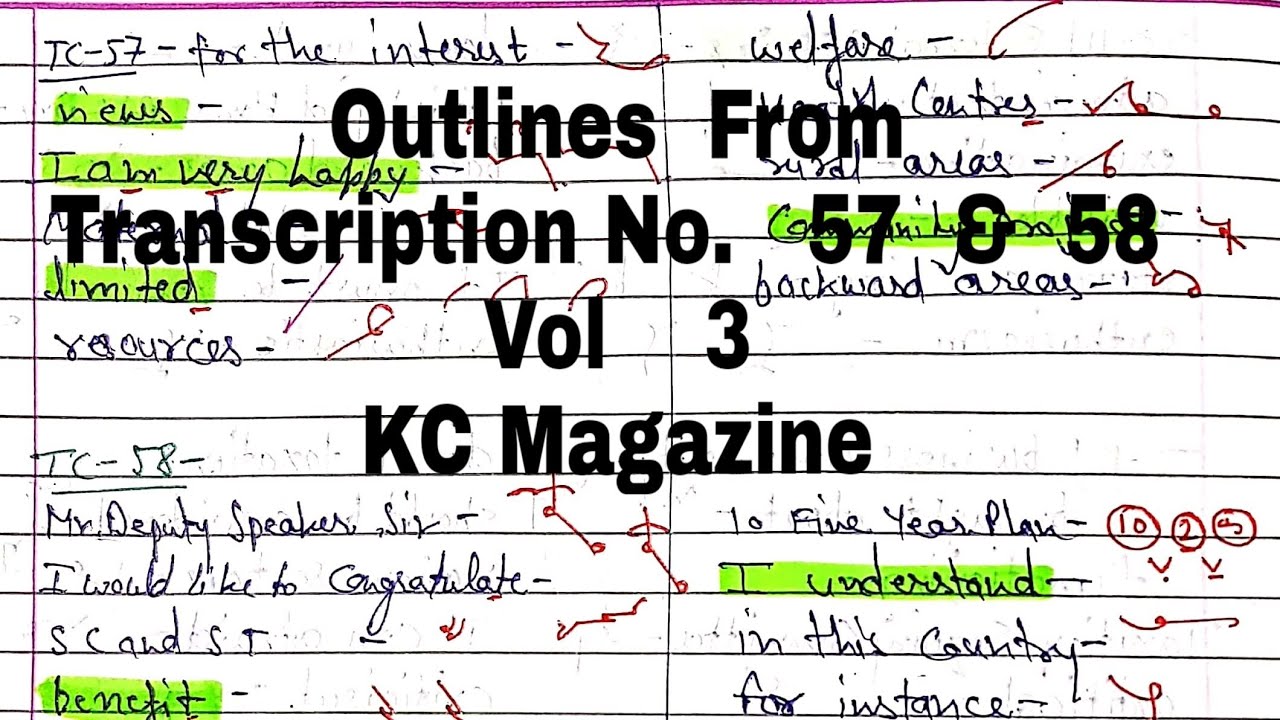 Outlines From
Transcription No. 57 & 58
Vol 3
KC Magazine
TC-57 - for the interest -
news -
I am very happy -
limited -
resources -
welfare -
Centres -
rural areas -
backward areas -
TC-58-
Mr. Deputy Speaker, Sir -
I would like to Congratulate -
SC and ST. -
benefit -
10 Five Year Plan -
I understand -
in this Country -
for instance -